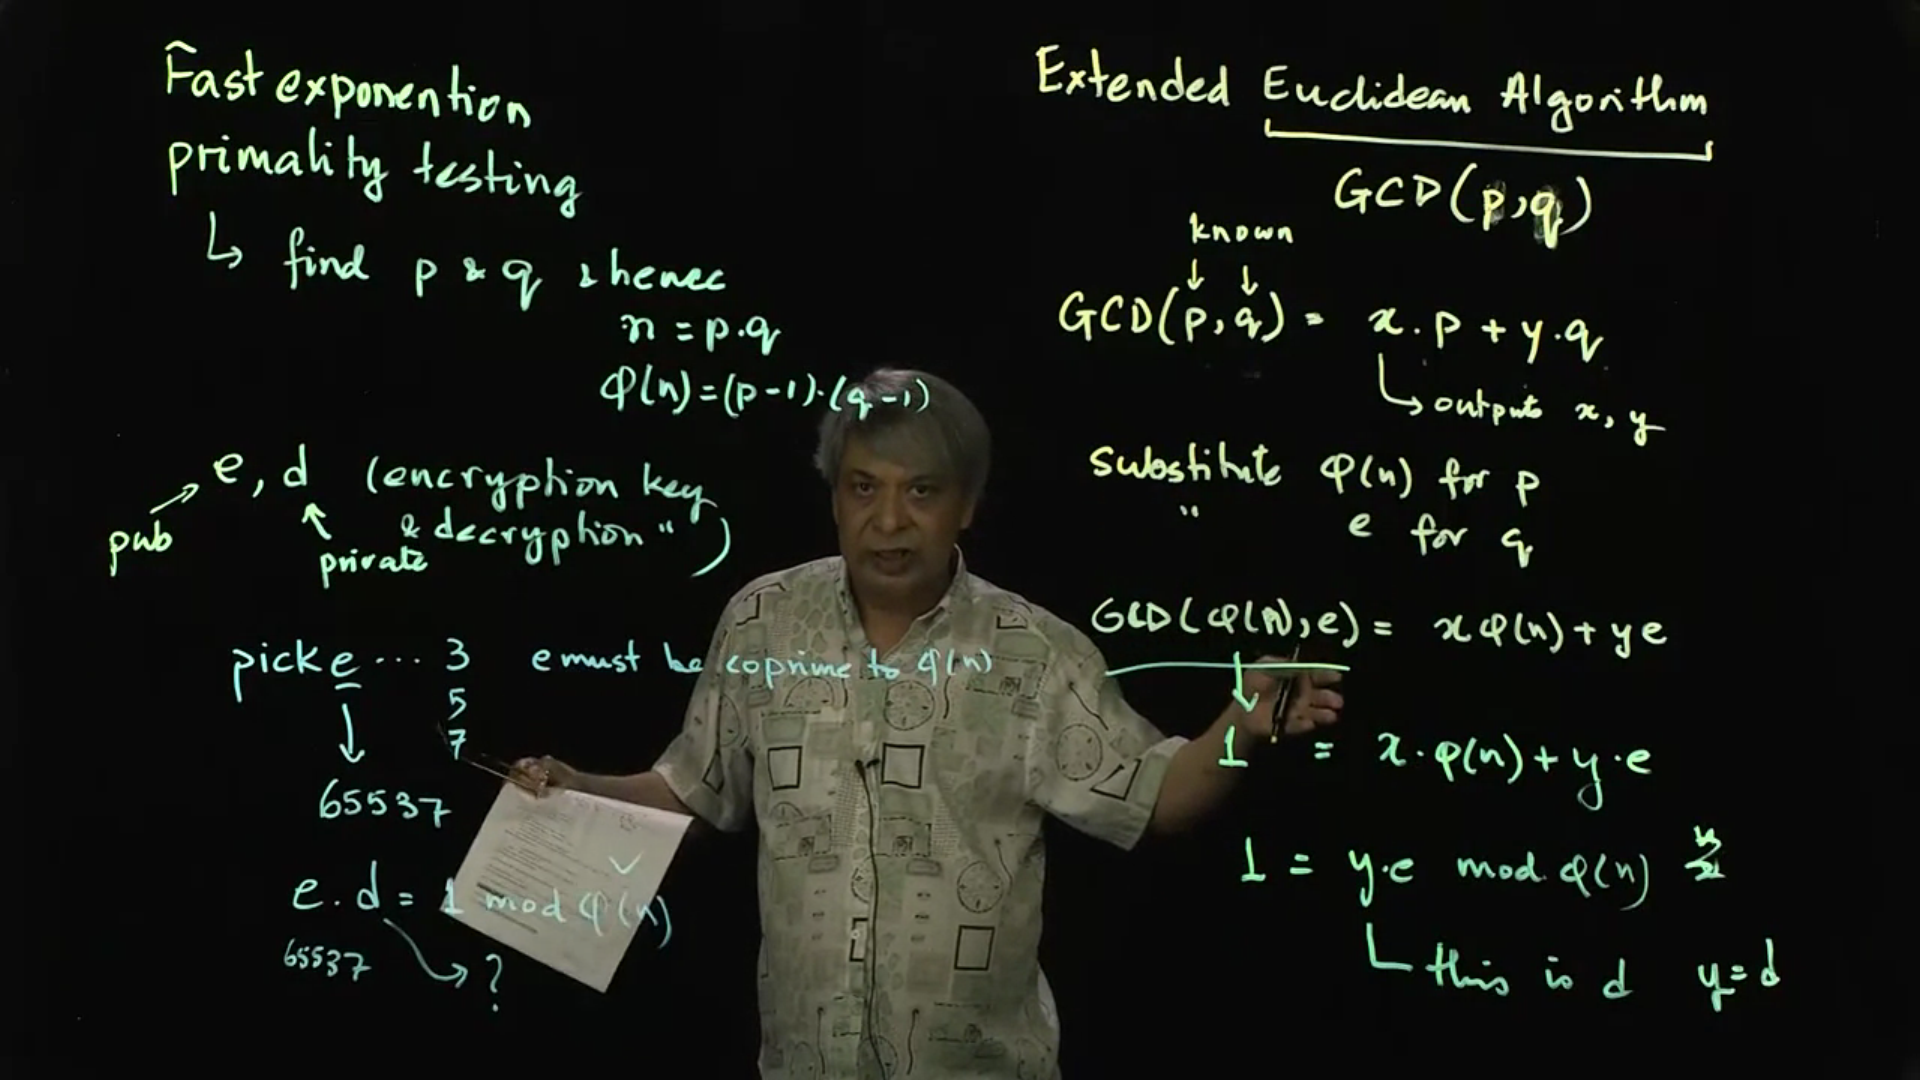 Fast exponention
primality testing
↳ find p & q & hence
n = p.q
φ(n) = (p-1).(q-1)
e, d (encryption key
& decryption " )
pub
private
pick e ... 3 e must be coprime to φ(n)
5
7
65537
e.d = 1 mod φ(n)
65537
?
Extended Euclidean Algorithm
GCD(p,q)
known
GCD(p,q) = x.p + y.q
outputs x, y
substitute φ(n) for p
" e for q
GCD(φ(n),e) = xφ(n) + ye
1 = x.φ(n) + y.e
1 = y.e mod φ(n)
this is d y=d